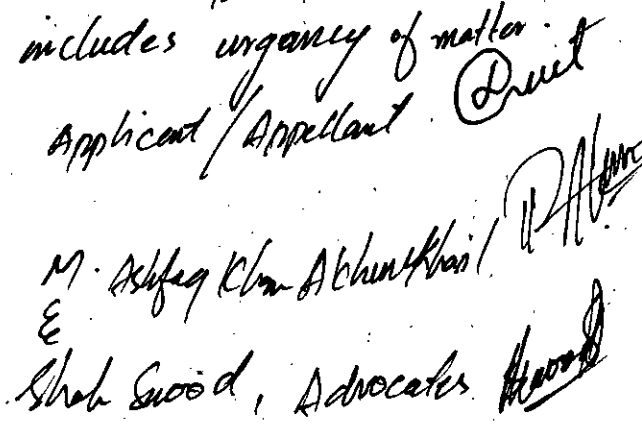 includes urgancy of matter.
Applicant / Appellant
M. Ashfaq Khan Akhunkhail
&
Shah Swood, Advocates